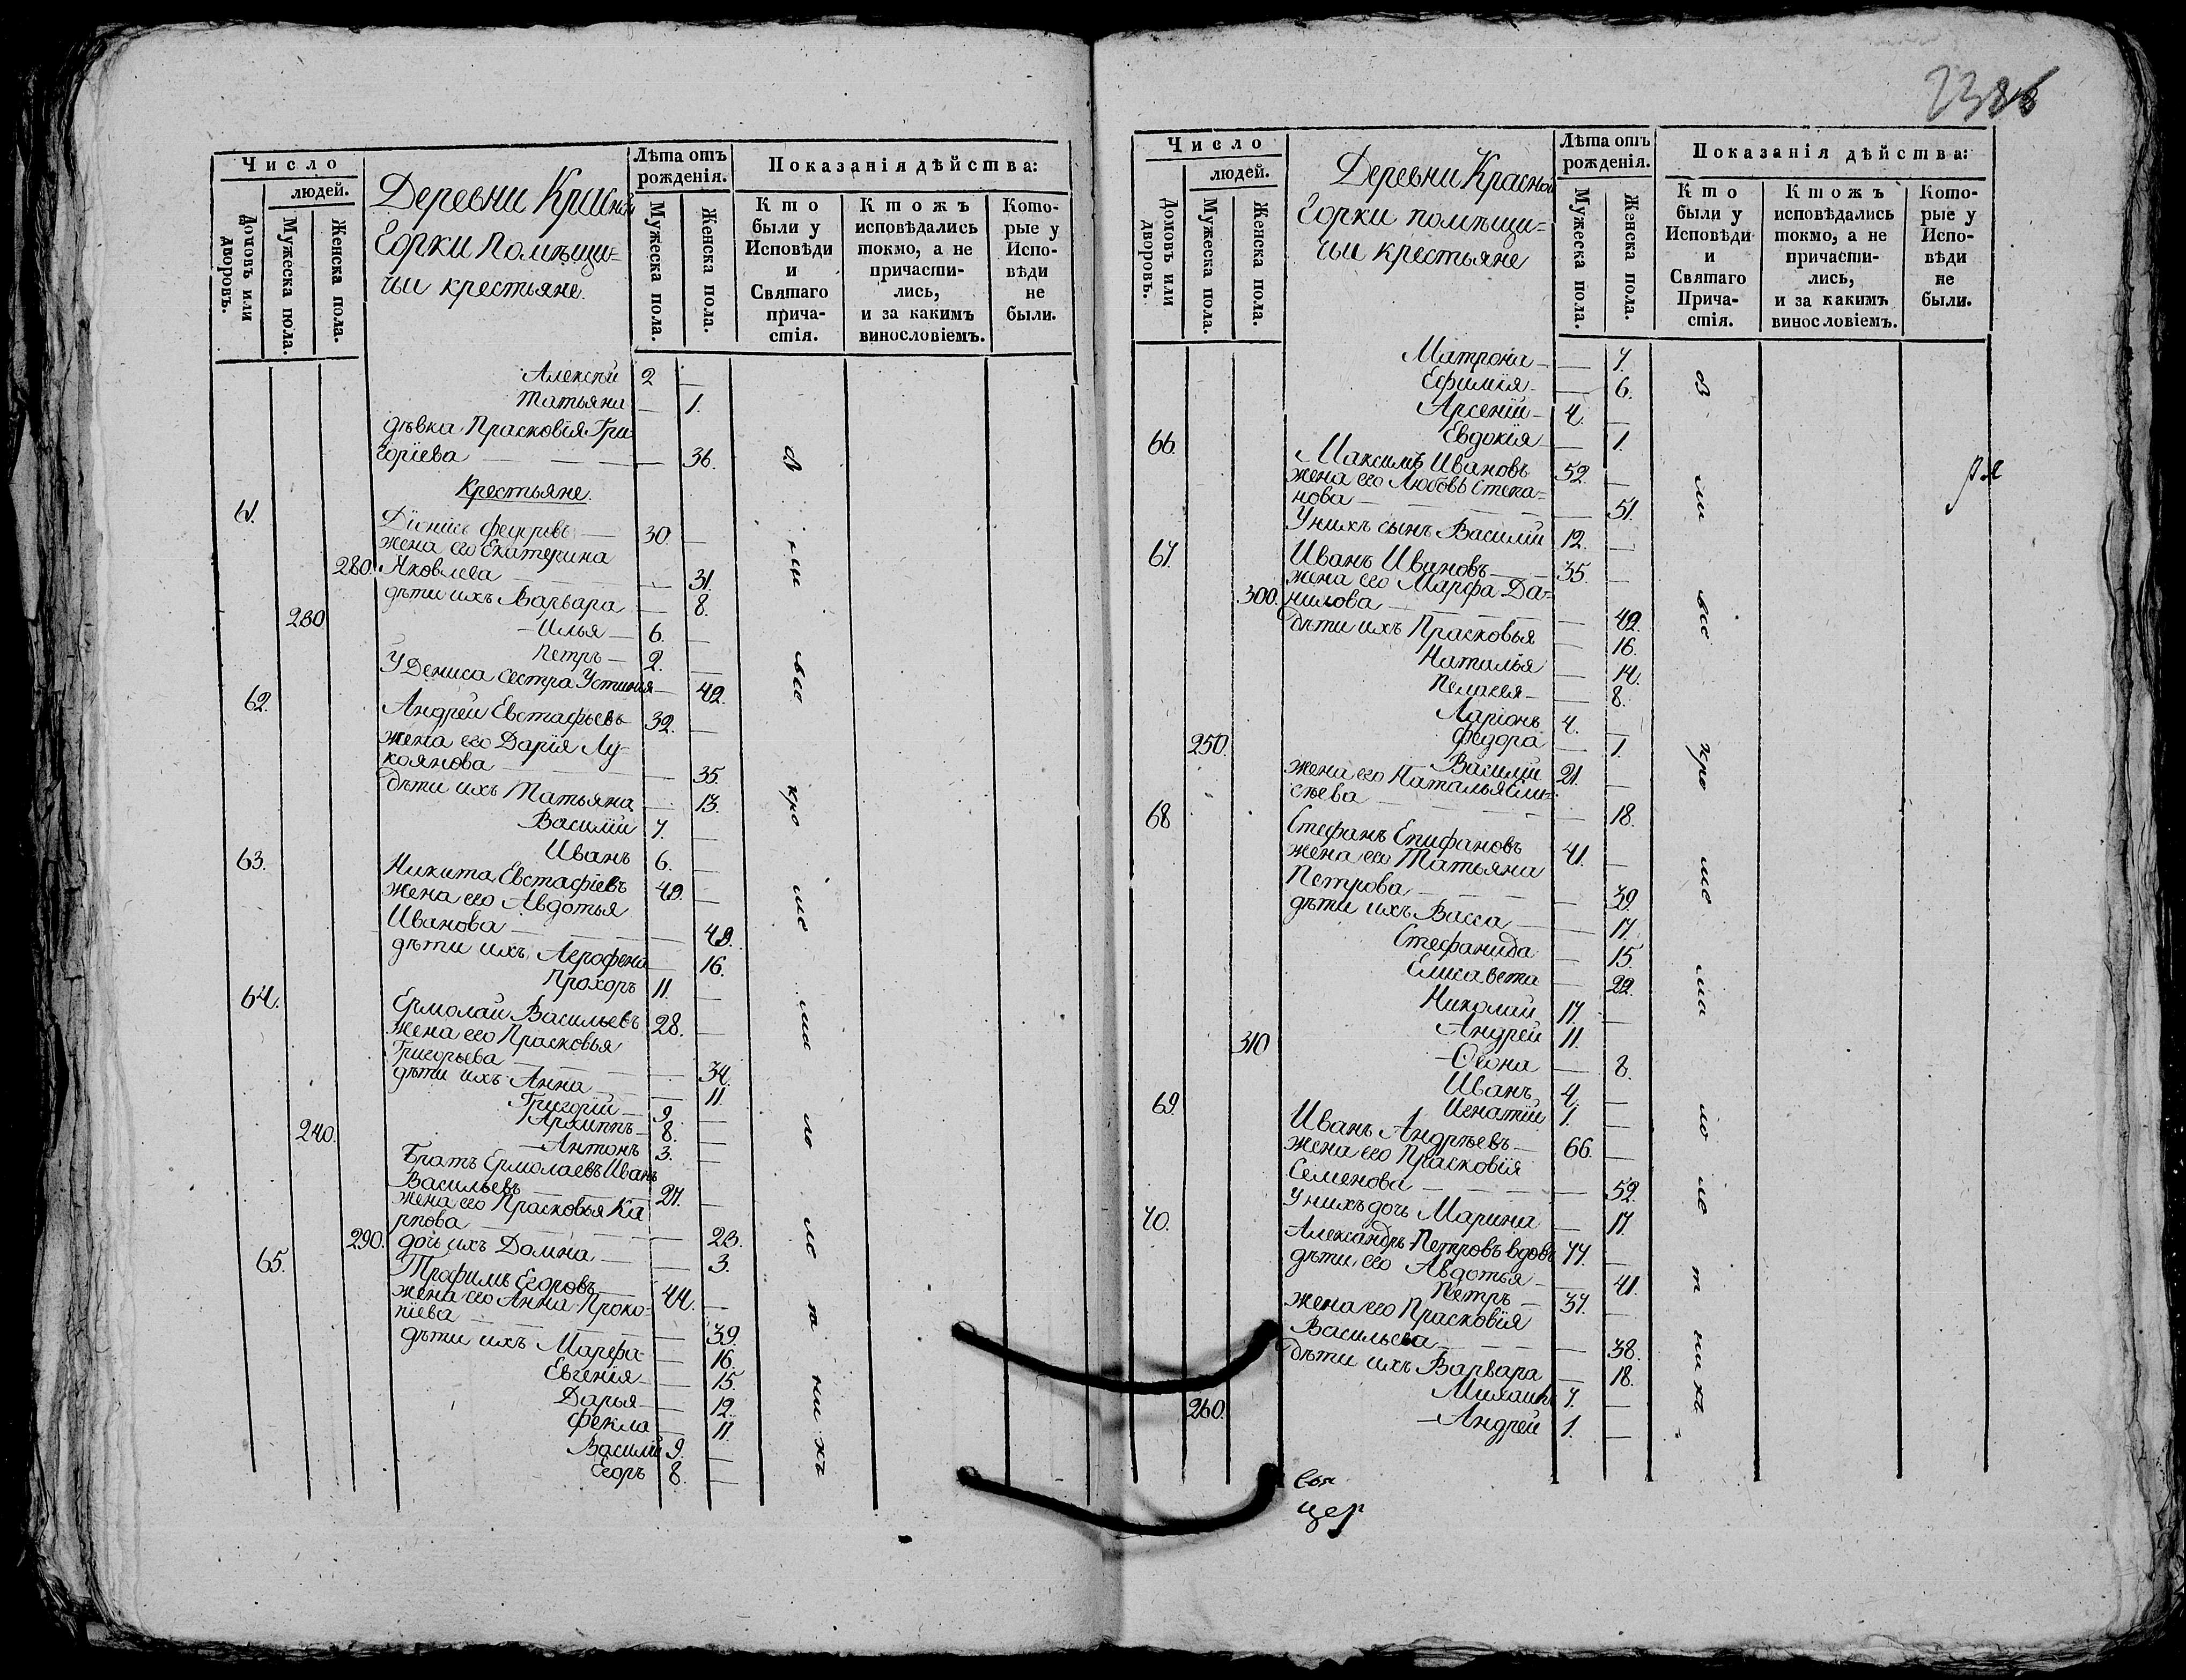 Число
людей.
Домовъ или дворовъ.
Мужеска пола.
Женска пола.
Деревни Красной
Горки помѣщи=
чьи крестьяне.
Лѣта отъ
рожденія.
Мужеска пола.
Женска пола.
Показанія дѣйства:
Кто
были у
Исповѣди
и
Святаго
прича-
стія.
Ктожъ
исповѣдались
токмо, а не
причасти-
лись,
и за какимъ
винословіемъ.
Кото-
рые у
Испо-
вѣди
не
были.
Алексѣй 2 —
Татьяна — 1.
дѣвка Прасковія Гри-
горіева — 36.
Крестьяне.
61.
Діонисъ Федоровъ — 30. —
жена его Екатерина
280. Яковлева — 31.
дѣти ихъ Варвара — 8.
230 Илья — 6. —
Петръ — 2. —
У Дениса сестра Устинья — 42.
62. Андрей Евстафьевъ 32. —
жена его Дарія Лу-
коянова — 35.
дѣти ихъ Татьяна — 13.
Василій 7. —
Иванъ 6. —
63. Никита Евстафіевъ 49. —
жена его Авдотья
Иванова — 49.
дѣти ихъ Агрофена — 16.
Прохоръ 11. —
64. Ермолай Васильевъ 28. —
жена его Прасковья
Григорьева — 34.
дѣти ихъ Анна — 11.
Григорій — 9. —
Архиппъ — 8. —
240. — Антонъ 3. —
Братъ Ермолаевъ Иванъ
Васильевъ — 27. —
жена его Прасковья Ка
рпова — 23.
290. дочь ихъ Домна — 3.
65. Трофимъ Егоровъ 44. —
жена его Анна Проко-
піева — 39.
дѣти ихъ Марфа — 16.
Евгенія — 15.
Дарья — 12.
Фекла — 11.
Василій 9. —
Егоръ 8. —
Число
людей.
Домовъ или дворовъ.
Мужеска пола.
Женска пола.
Деревни Красной
Горки помѣщи=
чьи крестьяне
Лѣта отъ
рожденія.
Мужеска пола.
Женска пола.
Показанія дѣйства:
Кто
были у
Исповѣди
и
Святаго
Прича-
стія.
Ктожъ
исповѣдались
токмо, а не
причасти-
лись,
и за какимъ
винословіемъ.
Кото-
рые у
Испо-
вѣди
не
были.
Матрона — 7.
Ефимія — 6.
Арсеній — 4. —
Евдокія — 1.
66. Максимъ Ивановъ 52. —
жена его Любовь Степа=
нова — 51.
У нихъ сынъ Василій 12. —
67. Иванъ Ивановъ — 35. —
жена его Марфа Да=
300. нилова — 42.
дѣти ихъ Прасковья — 16.
Наталья — 14.
Пелагея — 8.
Ларіонъ 4. —
250. Федора — 1.
Василій 21. —
жена его Наталья Ели=
сѣева — 18.
68 Стефанъ Епифановъ 41. —
жена его Татьяна
Петрова — 39.
дѣти ихъ Васса — 17.
Стефанида — 15.
Елисавета — 22.
Николай 17. —
Андрей 11. —
310 — Ѳеона — 8.
Иванъ 4. —
Игнатій 1. —
69. Иванъ Андрѣевъ — 66. —
жена его Прасковія
Семенова — 52.
У нихъ дочь Марина — 17.
70. Александръ Петровъ вдовъ 77. —
дѣти его Авдотья — 41.
Петръ — 37. —
жена его Прасковія
Васильева — 38.
дѣти ихъ Варвара — 18.
Михаилъ 7. —
260. — Андрей 1. —
цер